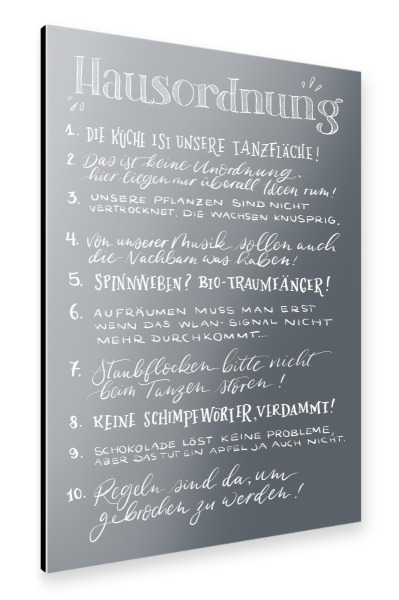 Hausordnung
1. DIE KÜCHE IST UNSERE TANZFLÄCHE!
2. Das ist keine Unordnung.
hier liegen nur überall Ideen rum!
3. UNSERE PFLANZEN SIND NICHT
VERTROCKNET, DIE WACHSEN KNUSPRIG.
4. Von unserer Musik sollen auch
die Nachbarn was haben!
5. SPINNWEBEN? BIO-TRAUMFÄNGER!
6. AUFRÄUMEN MUSS MAN ERST
WENN DAS WLAN-SIGNAL NICHT
MEHR DURCHKOMMT...
7. Staubflocken bitte nicht
beim Tanzen stören!
8. KEINE SCHIMPFWÖRTER, VERDAMMT!
9. SCHOKOLADE LÖST KEINE PROBLEME,
ABER DAS TUT EIN APFEL JA AUCH NICHT.
10. Regeln sind da, um
gebrochen zu werden!